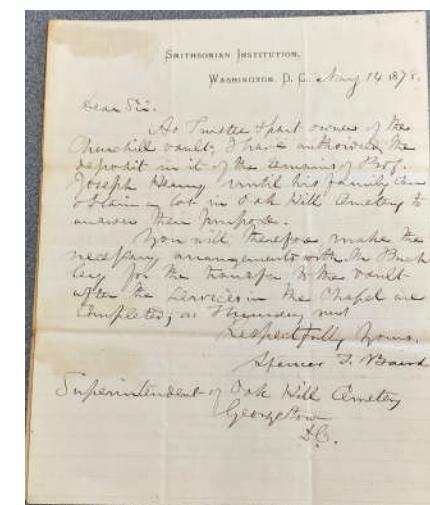 SMITHSONIAN INSTITUTION,
WASHINGTON, D. C. May 14 1878.
Dear Sir.
As Trustee & part owner of the
Churchill vault, I have authorized the
deposit in it of the remains of Prof.
Joseph Henry, until his family can
obtain a lot in Oak Hill Cemetery to
answer their purpose.
You will therefore make the
necessary arrangements with Mr Buck
ley for the transfer to the vault
after the services in the Chapel are
completed, on Thursday next
Respectfully Yours.
Spencer F. Baird
Superintendent of Oak Hill Cemetery
Georgetown
D.C.